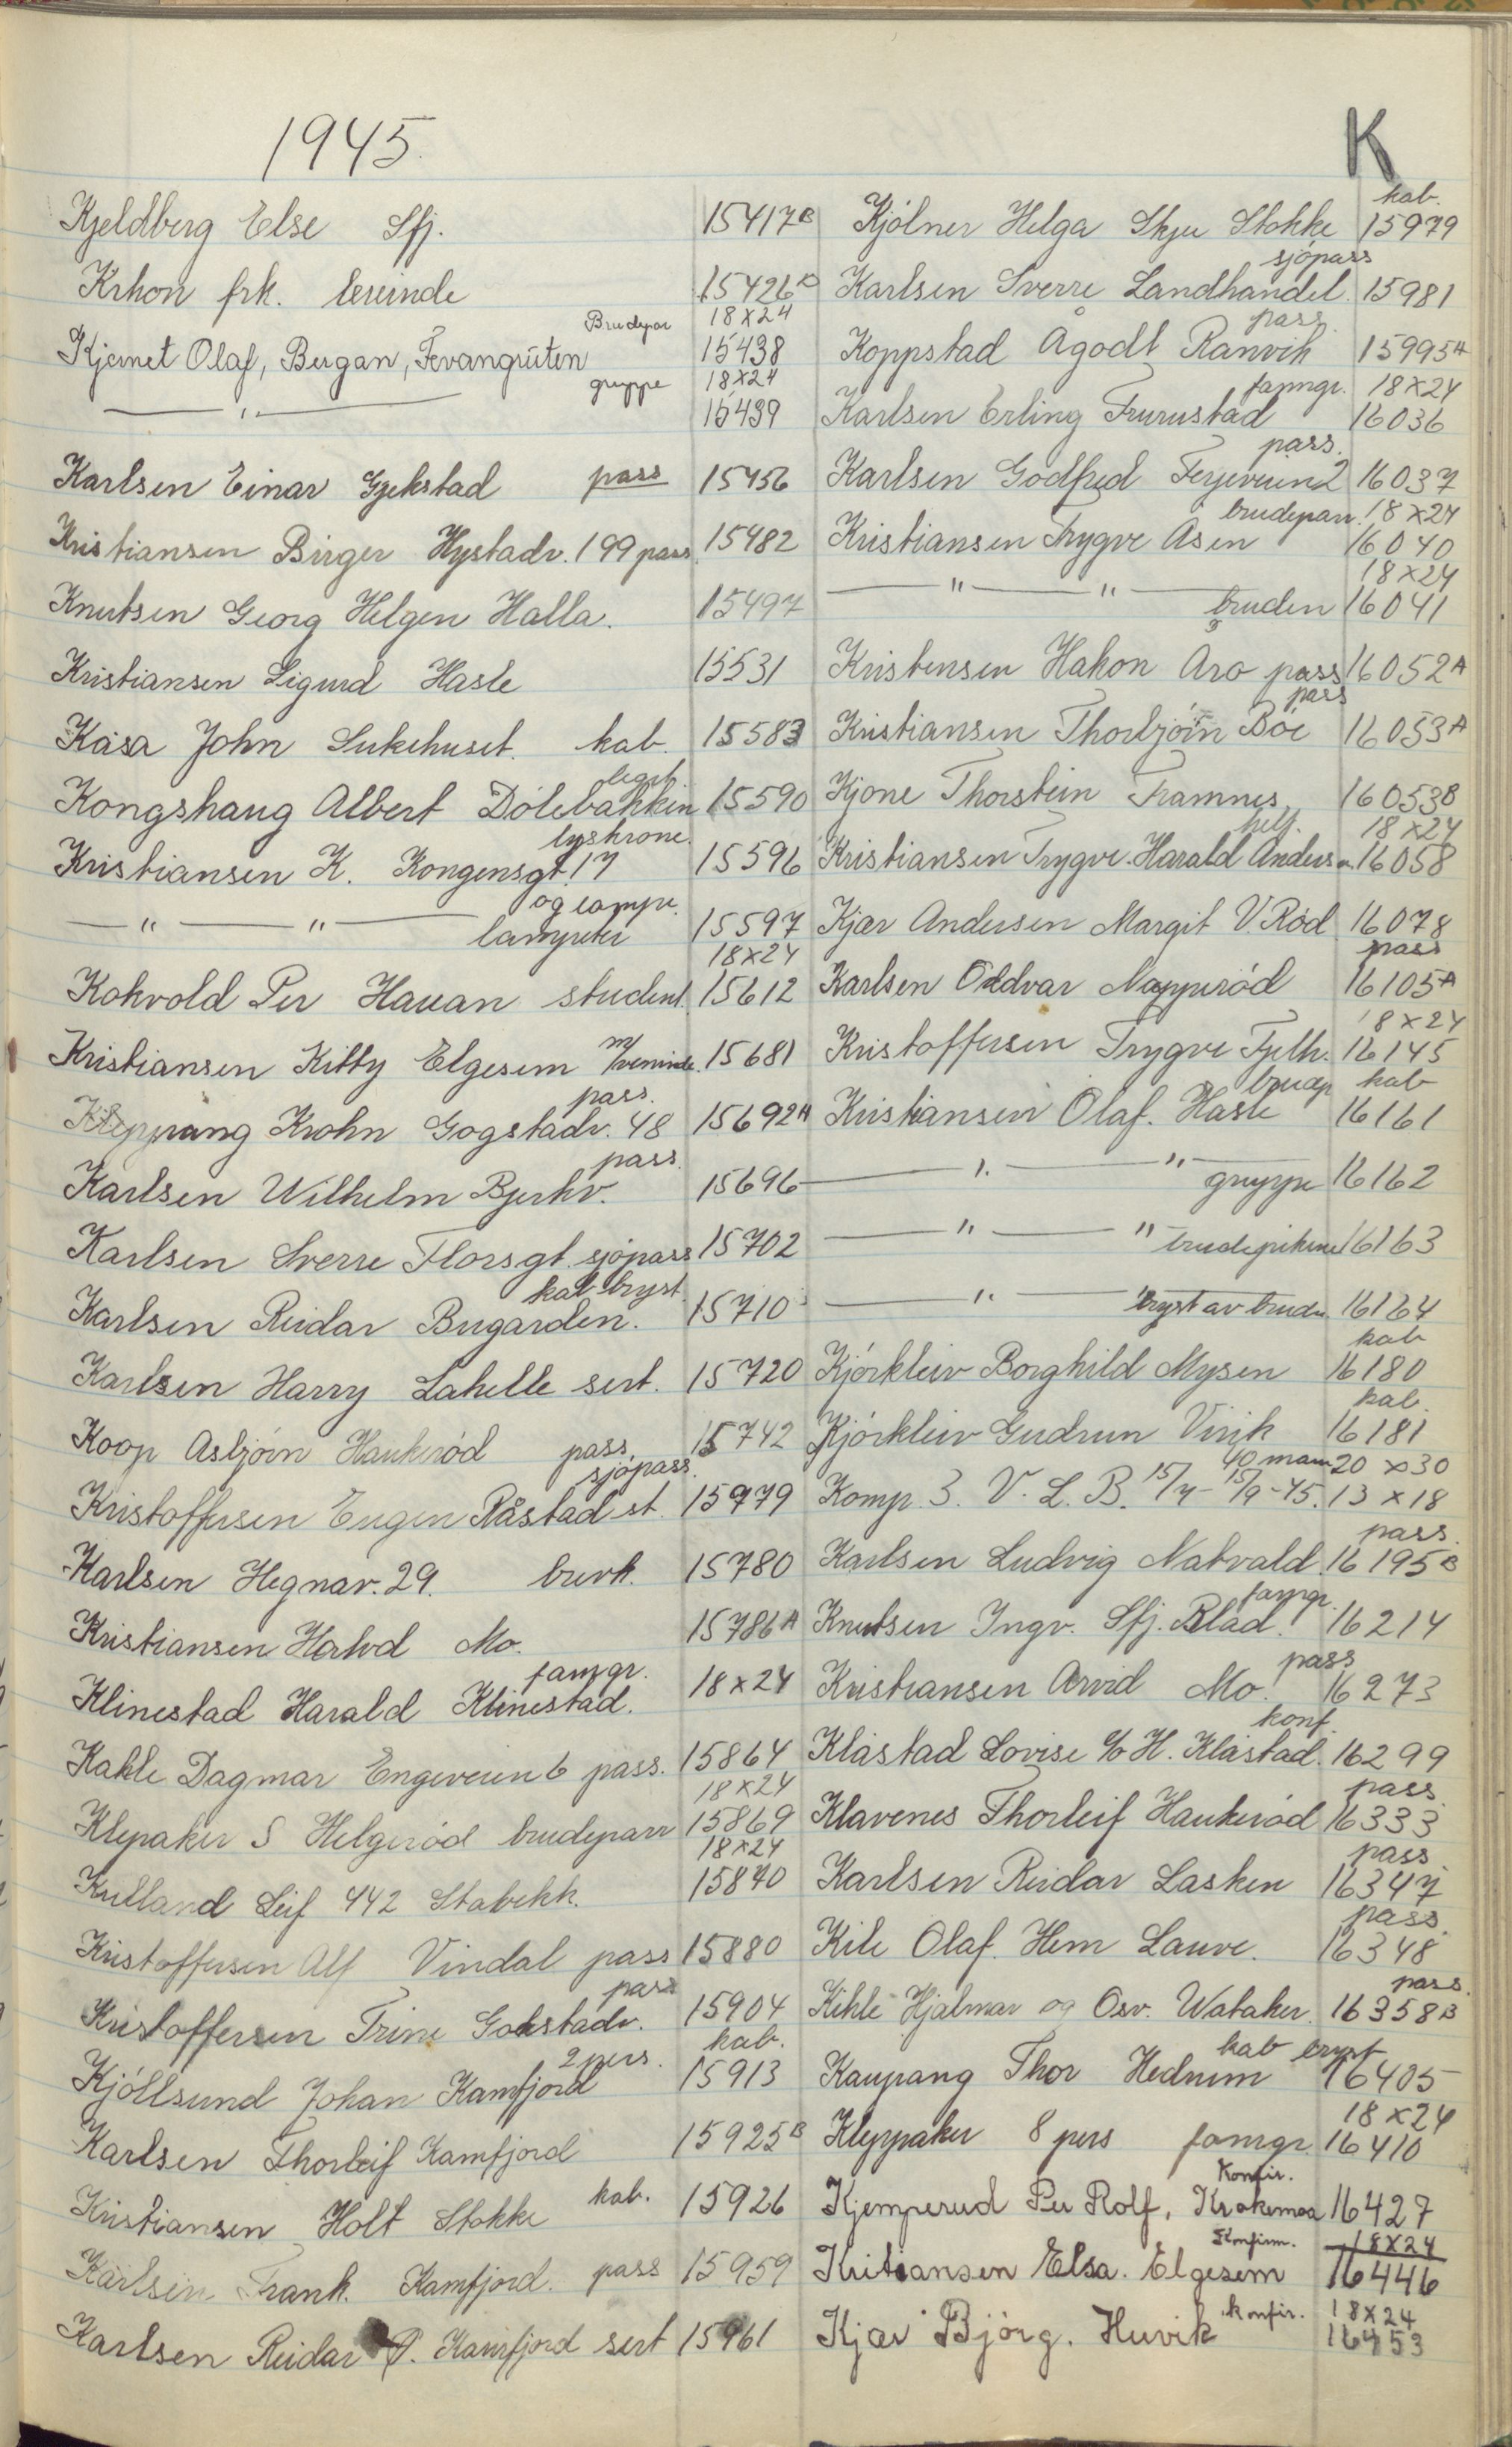 1945.
K
Kjeldberg Else Sfj. 15417B
Krhon frk. 15426B
Brudepar 18x24
Kjernet Olaf, Bergan, Tevangruten 15438
gruppe 18x24
—"— 15439
Karlsen Einar Gjekstad pass 15456
Kristiansen Birger Hystadv. 199 pass 15482
Knutsen Georg Helgen Halla. 15497
Kristiansen Sigurd Hasle 15531
Kåsa John Sukehuset. kab. 15583
legit.
Kongshaug Albert Dölebakken 15590
lyskrone.
Kristiansen K. Kongensgt. 17 15596
og lampe.
—"—"— lampeter 15597
18x24
Kokvold Per Hauan student. 15612
Kristiansen Kitty Elgesem m/venninde. 15681
pass.
Krohn Gogstadv. 48 15692A
pass.
Karlsen Wilhelm Bjerkv. 15696
Karlsen Sverre Florsgt. sjöpass 15702
kab bryst.
Karlsen Reidar Bugarden. 15710
Karlsen Harry Lahelle sert. 15720
Koop Asbjörn Haukeröd pass. 15742
sjöpass.
Kristoffersen Eugen Råstad st. 15779
Karlsen Hegnav. 29. brevk. 15780
Kristiansen Halvd Mo. 15786A
famgr.
Klinestad Harald Klinestad. 18x24
Kahle Dagmar Engeveien 6 pass. 15864
18x24
Klepaker S Helgeröd brudepar 15869
18x24
Kulland Leif 442 Stabekk. 15870
Kristoffersen Alf Vindal pass 15880
pass
Kristoffersen Trine Gokstadv. 15904
2 pers. kab.
Kjöllsund Johan Kamfjord 15913
Karlsen Thorleif Kamfjord 15925B
Kristiansen Holt Stokke kab. 15926
Karlsen Frank. Kamfjord. pass 15959
Karlsen Reidar P. Kamfjord sert 15961
kab.
Kjölner Helga Skju Stokke 15979
sjöpass
Karlsen Sverre Landhandel. 15981
pass.
Koppstad Ågodt Ranvik 15995A
famgr. 18x24
Karlsen Erling Trurustad 16036
pass.
Karlsen Godfred Ferjeveien 2 16037
brudepar. 18x24
Kristiansen Trygve Åsen 16040
18x24
—"—"— bruden 16041
Kristensen Håkon Åro pass 16052A
pass
Kristiansen Thorbjörn Böe 16053A
Kjone Thorstein Framnes 16053B
18x24
Kristiansen Trygve. Harald Anders 16058
Kjær Andersen Margit V. Röd 16078
pass
Karlsen Oddvar Napperöd 16105A
18x24
Kristoffersen Trygve Fjelh. 16145
brudep kab
Kristiansen Olaf. Hasle 16161
—"—"— gruppe 16162
—"—"— brudepikene 16163
—"— bryst av bruden. 16164
kab
Kjörkleiv Borghild Mysen 16180
kab.
Kjörkleiv Gudrun Virik 16181
40 mann 20 x 30
Komp. 3. V. L. B. 15/7 - 15/9 -45. 13 x 18
pass.
Karlsen Ludvig Natvald. 16195B
famgr.
Knutsen Ingv. Sfj. Blad. 16214
pass
Kristiansen Arvid Mo. 16273
konf.
Klåstad Lovise c/o H. Klåstad. 16299
pass
Klavenes Thorleif Haukeröd 16333
pass
Karlsen Reidar Lasken 16347
pass.
Kile Olaf. Hem Lauve. 16348
pass.
Kihle Hjalmar og Osv. Wataker. 16358B
kab bryst
Kaupang Thor Hedrum 16405
18x24
Kleppaker 8 pers famgr. 16410
Konfir.
Kjemperud Per Rolf, Krokemoa 16427
Konfirm. 18x24
Kritiansen Elsa. Elgesem 16446
konfir. 18x24
Kjær Björg. Huvik 16453